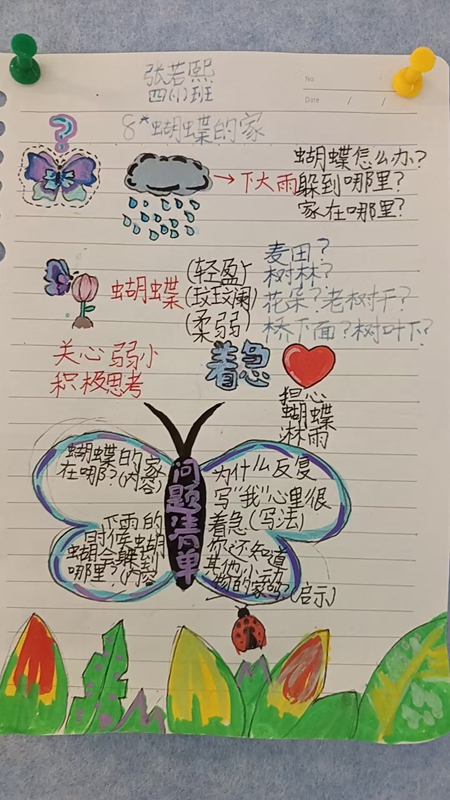 张若熙
四(1)班
No.
Date / /
8*蝴蝶的家
?
蝴蝶怎么办?
→下大雨 躲到哪里?
家在哪里?
蝴蝶
(轻盈)
(斑斓)
(柔弱)
麦田?
树林?
花朵?老树干?
桥下面?树叶下?
关心弱小
积极思考
着急
担心
蝴蝶
淋雨
问题清单
蝴蝶的家
在哪?(内容)
下雨的
时候蝴
蝴会躲到
哪里?(内容
为什么反复
写“我”心里很
着急(写法)
你还知道
其他小动
物的家吗?(启示)